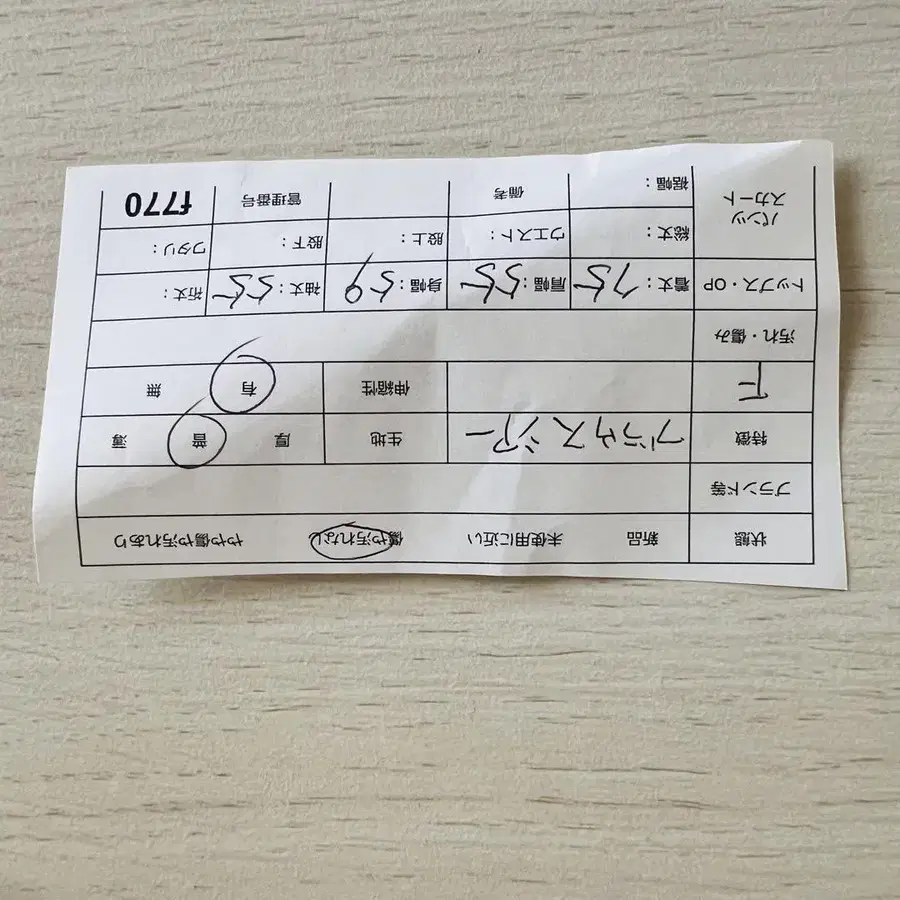 状態 新品 未使用に近い 傷や汚れなし やや傷や汚れあり
ブランド等
特徴 ブラウス シアー 生地 厚 普 薄
伸縮性 有 無
汚れ・傷み
トップス・OP 着丈：75 肩幅：55 身幅：59 袖丈：55 裄丈：
パンツ 総丈： ウエスト： 股上： 股下： ワタリ：
スカート 裾幅： 備考 管理番号 f770